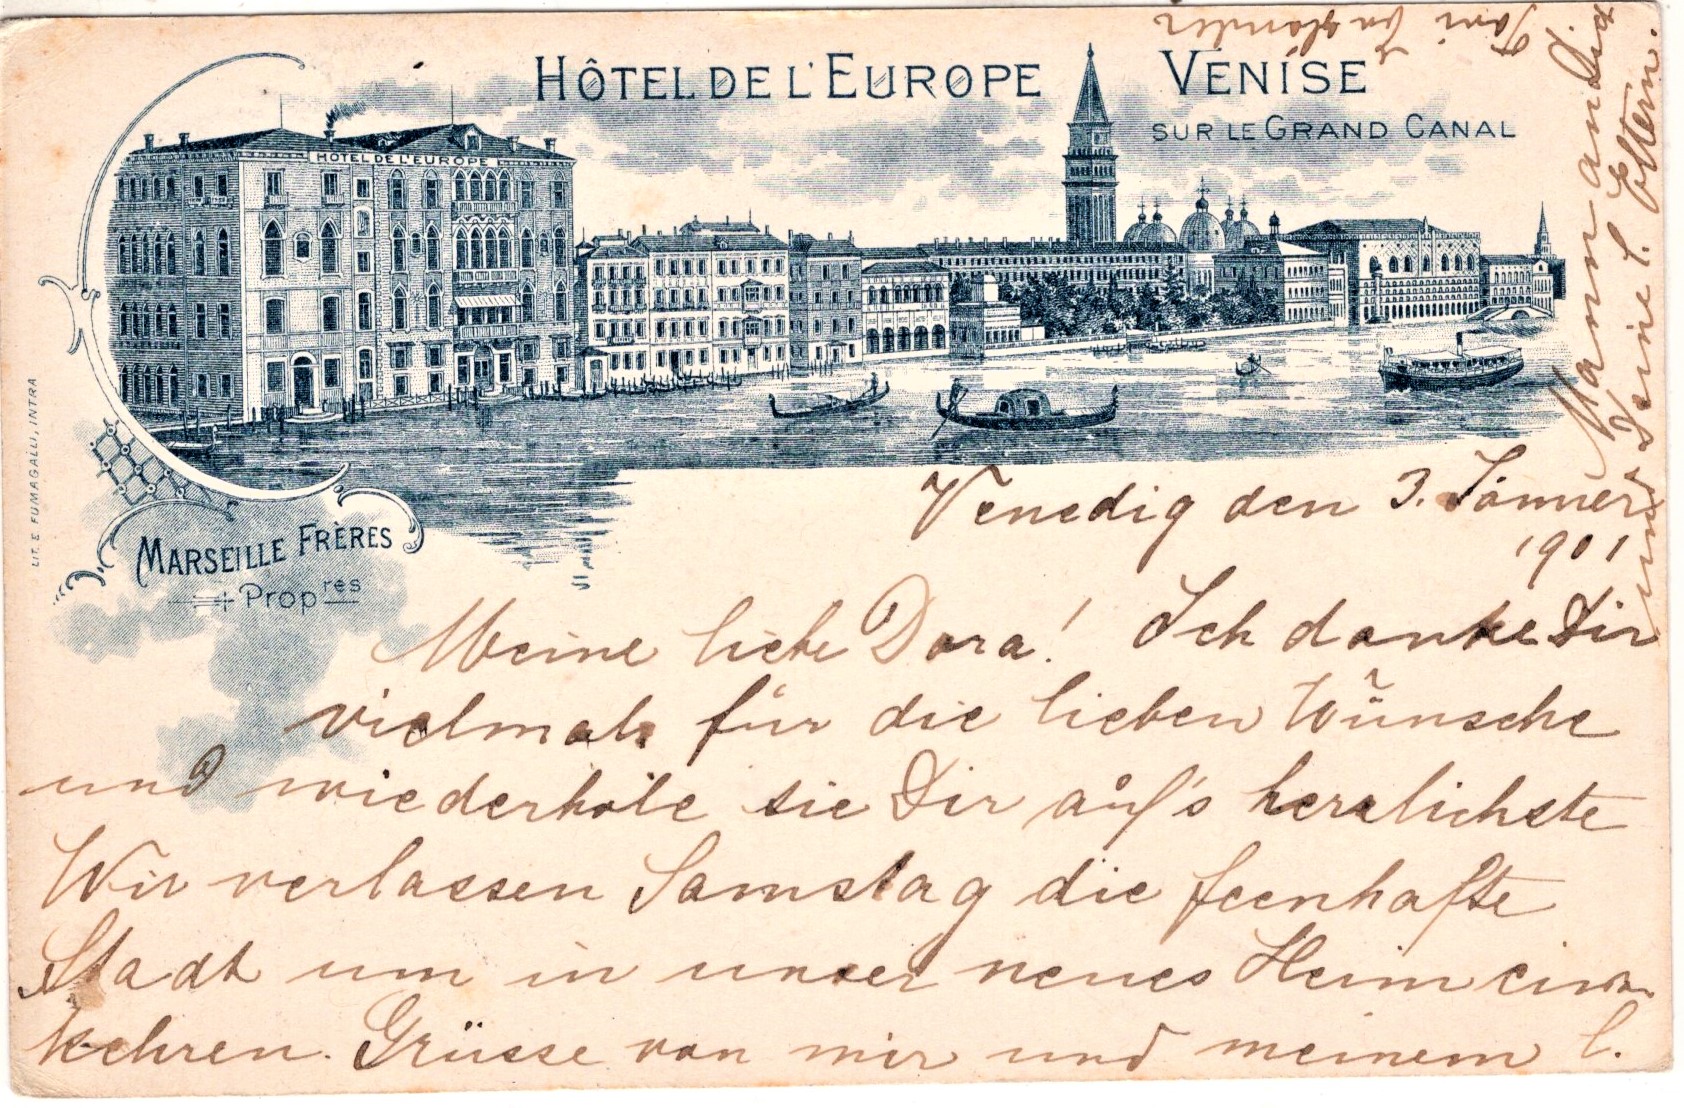 HÔTEL DE L'EUROPE VENISE
SUR LE GRAND CANAL
HOTEL DE L'EUROPE
LIT. E. FUMAGALLI, INTRA
MARSEILLE FRÈRES
Propres
Venedig den 3. Jänner
1901
Meine liebe Dora! Ich danke Dir
vielmals für die lieben Wünsche
und wiederhole sie Dir auf's herzlichste
Wir verlassen Samstag die feenhafte
Stadt um in unser neues Heim einzu
kehren. Grüsse von mir und meinem l.
Mann an Dich
und Deine l. Eltern.